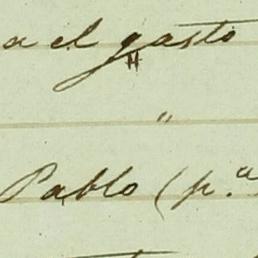 a el gasto
"
"
Pablo (p.a